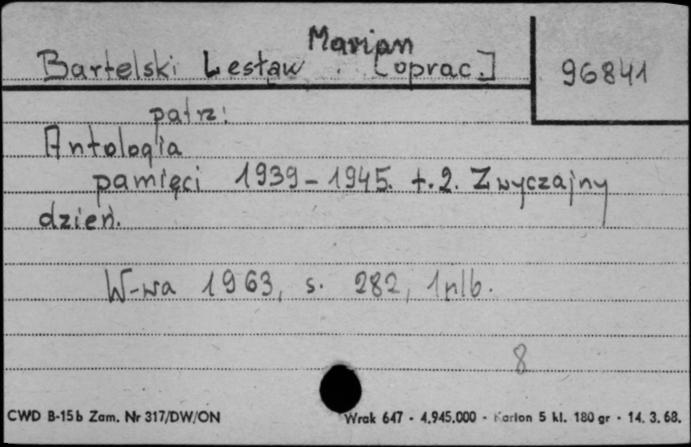 Bartelski Lesław Marian [oprac.]
96841
patrz:
Antologia
pamięci 1939-1945. t.2. Zwyczajny
dzień.
W-wa 1963, s. 282, 1nlb.
8
CWD B-15b Zam. Nr 317/DW/ON
Wrak 647 - 4.945.000 - Karton 5 kl. 180 gr - 14. 3. 68.